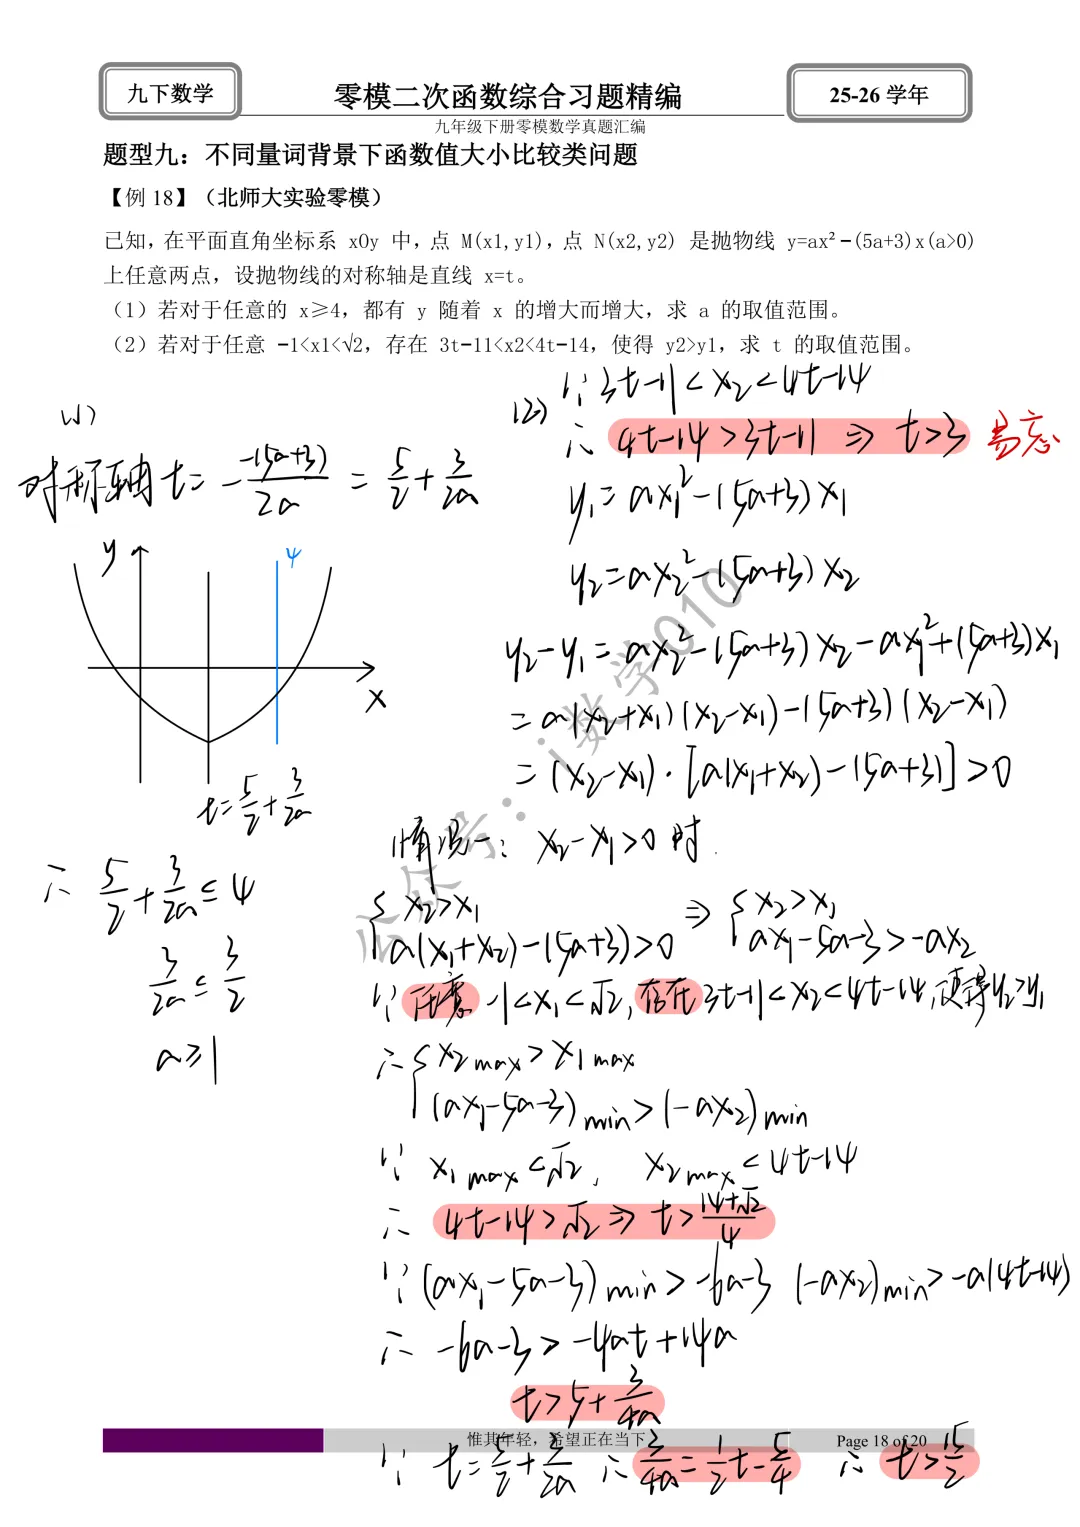 九下数学
零模二次函数综合习题精编
25-26 学年
九年级下册零模数学真题汇编
题型九：不同量词背景下函数值大小比较类问题
【例 18】（北师大实验零模）
已知,在平面直角坐标系 xOy 中,点 M(x1,y1),点 N(x2,y2) 是抛物线 y=ax²-(5a+3)x(a>0)
上任意两点，设抛物线的对称轴是直线 x=t。
（1）若对于任意的 x≥4，都有 y 随着 x 的增大而增大，求 a 的取值范围。
（2）若对于任意 -1<x1<√2，存在 3t-11<x2<4t-14，使得 y2>y1，求 t 的取值范围。
(1)
对称轴 t= -\frac{-(5a+3)}{2a} = \frac{5}{2}+\frac{3}{2a}
y
4
x
t=\frac{5}{2}+\frac{3}{2a}
∴ \frac{5}{2}+\frac{3}{2a}≤4
\frac{3}{2a}≤\frac{3}{2}
a≥1
(2) ∵ 3t-11<x₂<4t-14
∴ 4t-14>3t-11 ⇒ t>3 易忘
y₁=ax₁²-(5a+3)x₁
y₂=ax₂²-(5a+3)x₂
y₂-y₁=ax₂²-(5a+3)x₂-ax₁²+(5a+3)x₁
=a(x₂+x₁)(x₂-x₁)-(5a+3)(x₂-x₁)
=(x₂-x₁)·[a(x₁+x₂)-(5a+3)]>0
情况一：x₂-x₁>0 时.
{x₂>x₁ ⇒ {x₂>x₁
a(x₁+x₂)-(5a+3)>0 ax₁-5a-3>-ax₂
∵ 任意 -1<x₁<√2, 存在 3t-11<x₂<4t-14,使得y₂>y₁
∴ {x₂max>x₁max
(ax₁-5a-3)min>(-ax₂)min
∵ x₁max<√2, x₂max<4t-14
∴ 4t-14>√2 ⇒ t>\frac{14+√2}{4}
∵ (ax₁-5a-3)min>-6a-3 (-ax₂)min>-a(4t-14)
∴ -6a-3>-4at+14a
t>5+\frac{3}{4a}
惟其年轻，希望正在当下
Page 18 of 20
∵ t=\frac{5}{2}+\frac{3}{2a} ∴ \frac{3}{4a}=\frac{1}{2}t-\frac{5}{4} ∴ t>\frac{15}{2}
公众号：i数学010